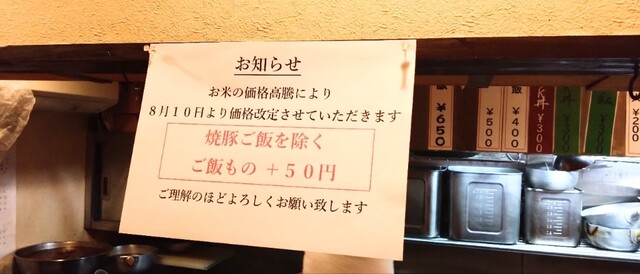 お知らせ
お米の価格高騰により
8月10日より価格改定させていただきます
焼豚ご飯を除く
ご飯もの +50円
ご理解のほどよろしくお願い致します
¥650
¥500
飯 ¥400
丼 ¥300